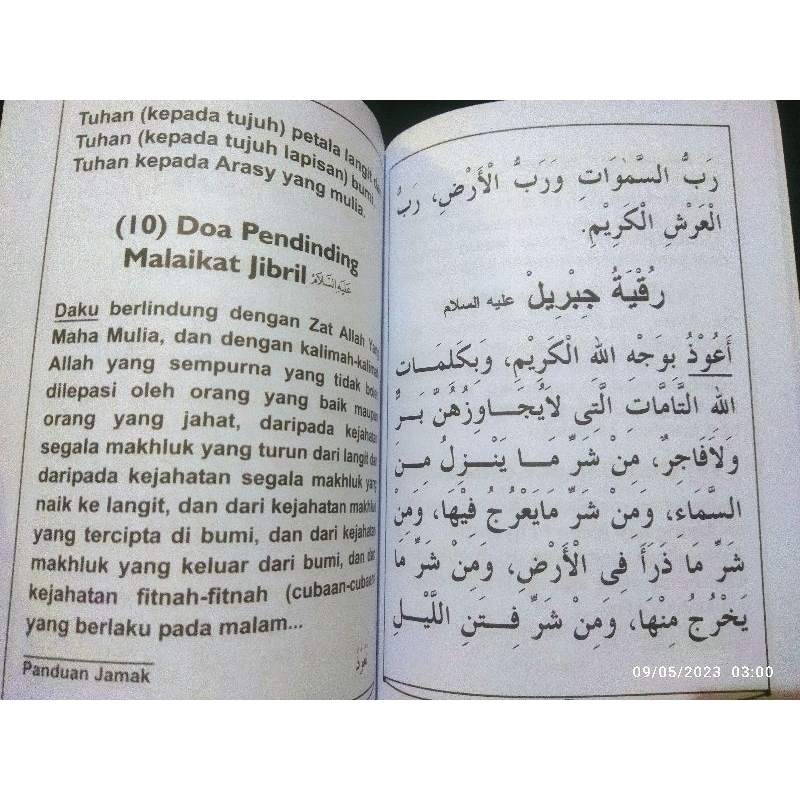 Tuhan (kepada tujuh) petala langit
Tuhan (kepada tujuh lapisan) bumi,
Tuhan kepada Arasy yang mulia.
(10) Doa Pendinding
Malaikat Jibril عَلَيْهِ السَّلَامُ
Daku berlindung dengan Zat Allah Yang
Maha Mulia, dan dengan kalimah-kalimah
Allah yang sempurna yang tidak boleh
dilepasi oleh orang yang baik maupun
orang yang jahat, daripada kejahatan
segala makhluk yang turun dari langit dan
daripada kejahatan segala makhluk yang
naik ke langit, dan dari kejahatan makhluk
yang tercipta di bumi, dan dari kejahatan
makhluk yang keluar dari bumi, dan dari
kejahatan fitnah-fitnah (cubaan-cubaan)
yang berlaku pada malam...
Panduan Jamak
رَبُّ السَّمٰوَاتِ وَرَبُّ الْأَرْضِ، رَبُّ
الْعَرْشِ الْكَرِيْمِ.
رُقْيَةُ جِبْرِيلْ عليه السلام
أَعُوْذُ بِوَجْهِ اللهِ الْكَرِيْمِ، وَبِكَلِمَـاتِ
اللهِ التَّامَّاتِ الَّتِى لَايُجَـاوِزُهُنَّ بَـرٌّ
وَلَافَاجِرٌ، مِنْ شَرِّ مَـا يَنْـزِلُ مِـنَ
السَّمَاءِ، وَمِنْ شَرِّ مَايَعْرُجُ فِيْهَا، وَمِنْ
شَرِّ مَا ذَرَأَ فِى الْأَرْضِ، وَمِنْ شَرِّ مَا
يَخْرُجُ مِنْهَا، وَمِنْ شَرِّ فِـتَنِ اللَّيْلِ
09/05/2023 03:00